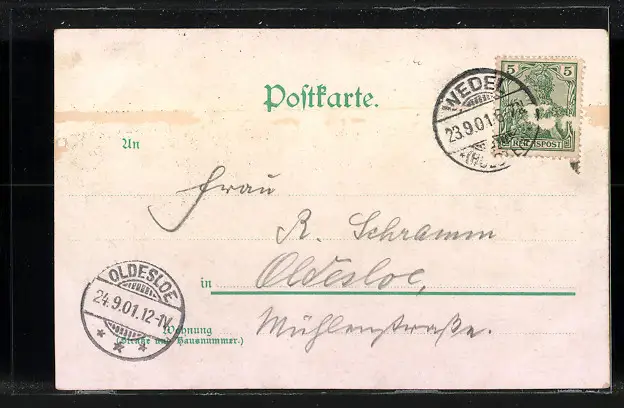 Postkarte.
5 5
REICHSPOST
WEDEL
23.9.01.
(HOLST
An
Frau
R. Schramm
in Oldesloe,
Mühlenstraße.
Wohnung
(Straße und Hausnummer.)
OLDESLOE
24.9.01.12-1V.
* * *